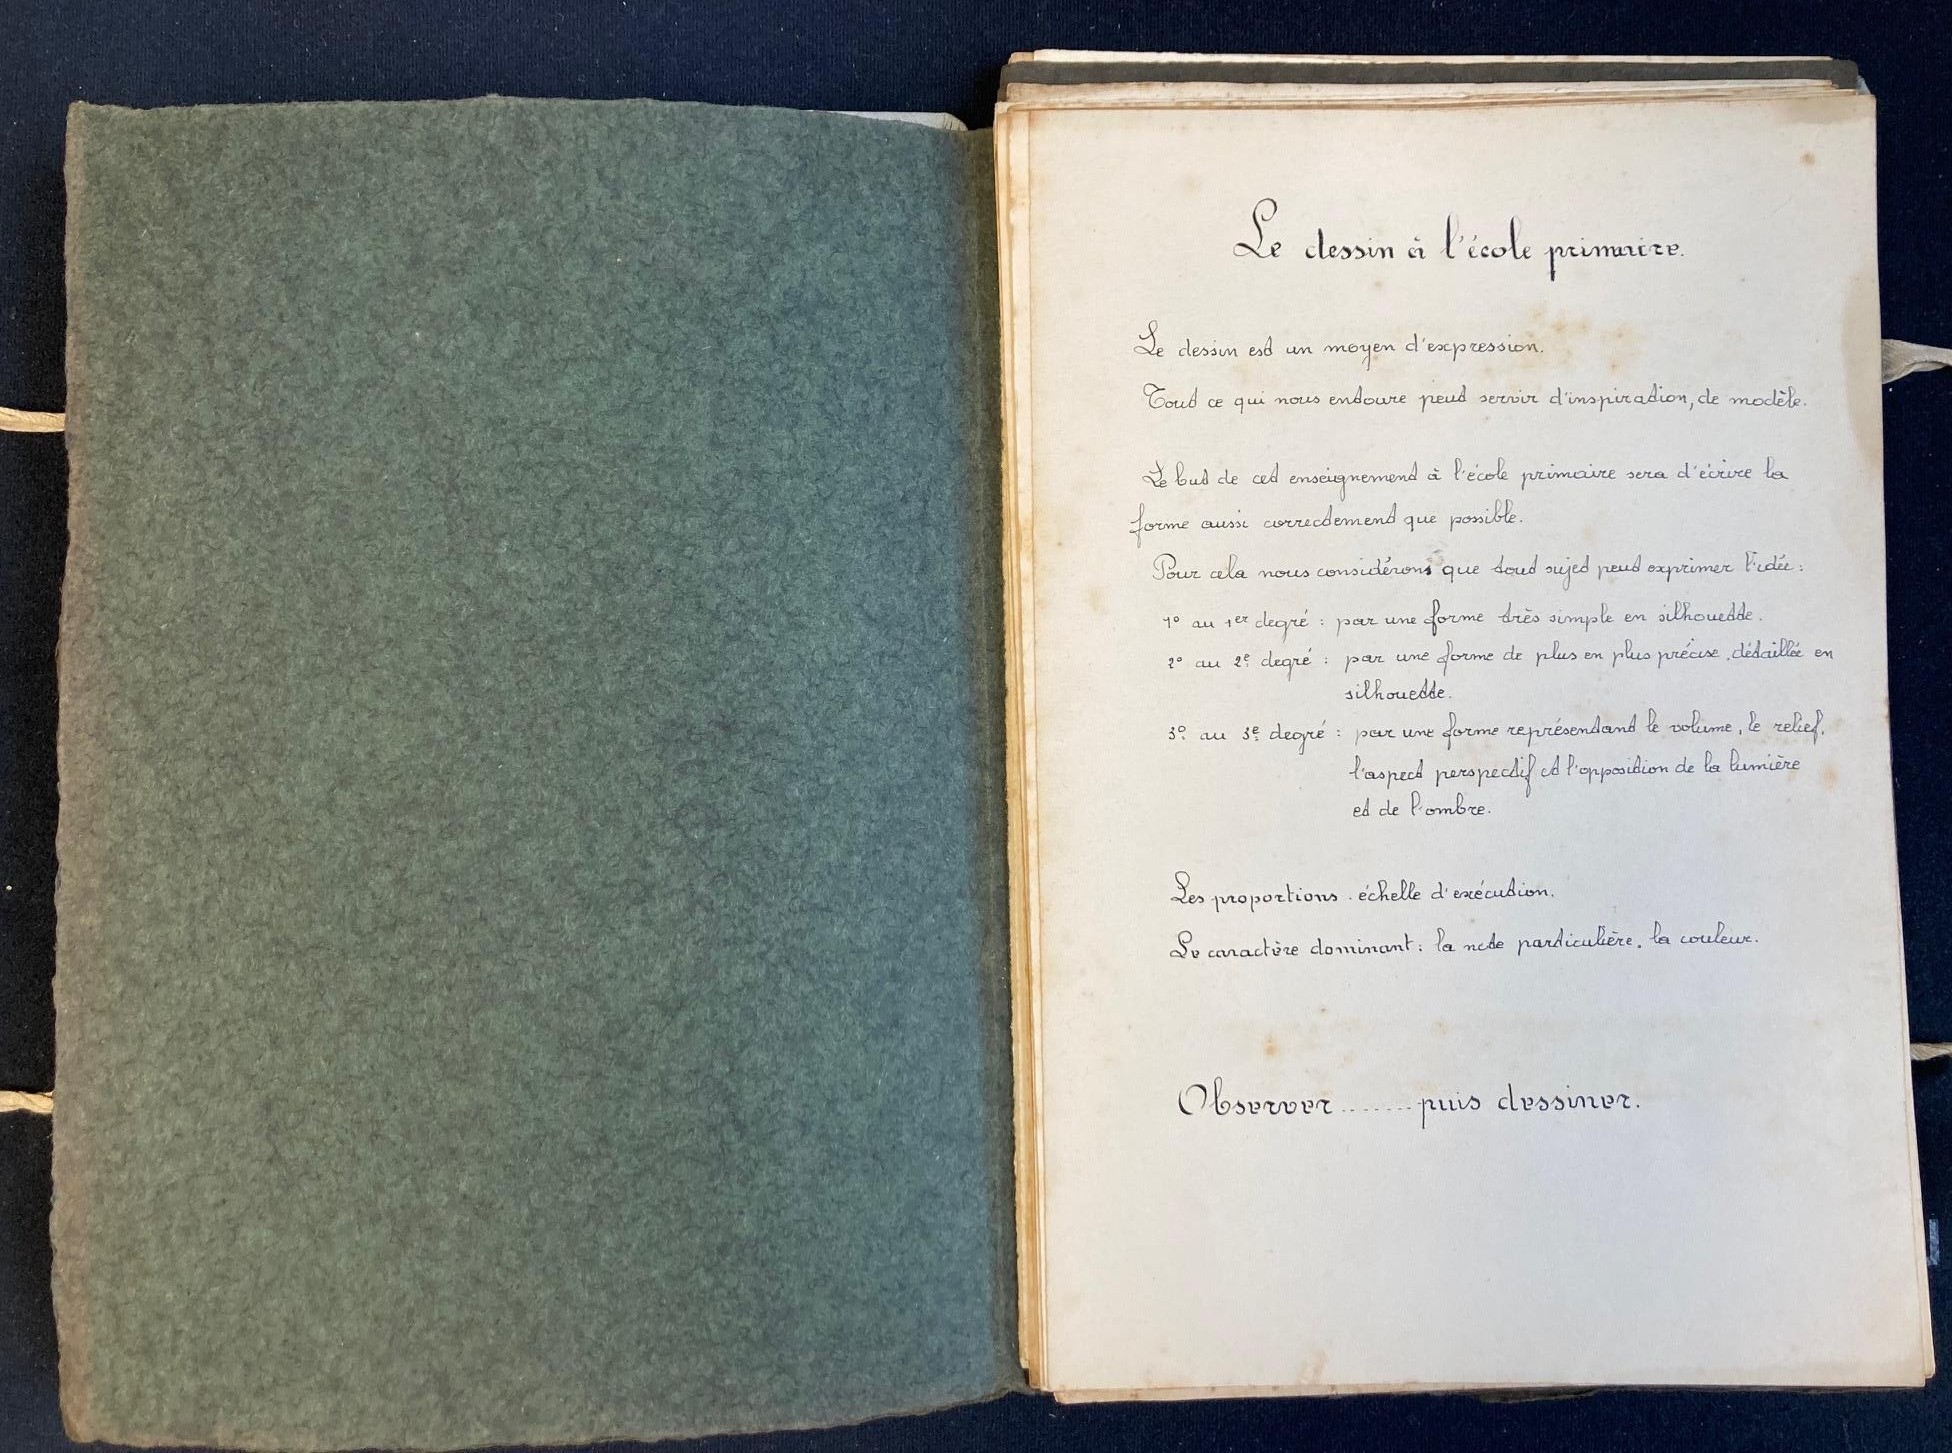 Le dessin à l'école primaire.
Le dessin est un moyen d'expression.
Tout ce qui nous entoure peut servir d'inspiration, de modèle.
Le but de cet enseignement à l'école primaire sera d'écrire la
forme aussi correctement que possible.
Pour cela nous considérons que tout sujet peut exprimer l'idée :
1° au 1er degré : par une forme très simple en silhouette.
2° au 2e degré : par une forme de plus en plus précise, détaillée en
silhouette.
3° au 3e degré : par une forme représentant le volume, le relief,
l'aspect perspectif et l'opposition de la lumière
et de l'ombre.
Les proportions . échelle d'exécution.
Le caractère dominant : la note particulière, la couleur.
Observer ....... puis dessiner.